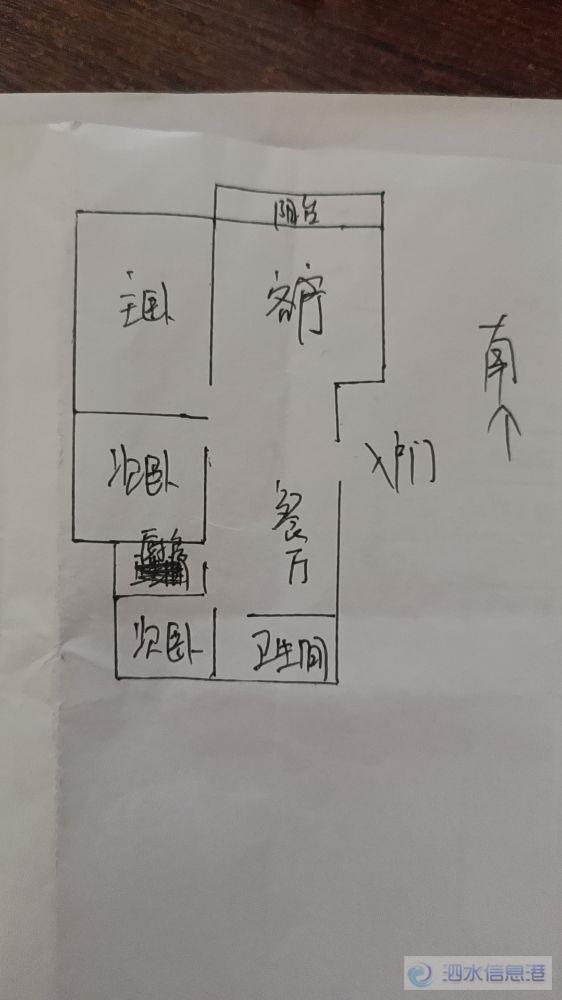 阳台
主卧
客厅
南
次卧
入户门
餐厅
厨房
次卧
卫生间
泗水信息港